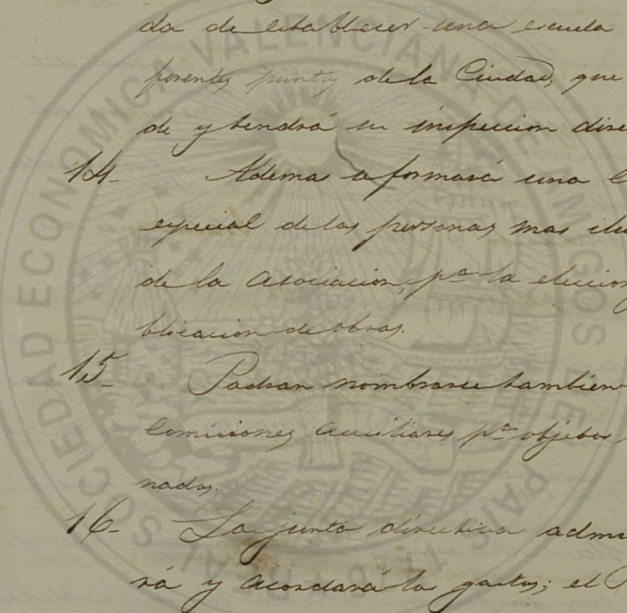 da de establecer una escuela
ferentes puntos de la Ciudad, que
de y tendrá su inspeccion dire
14. Ademas se formará una C
especial de las personas mas ilu
de la Asociacion, pª la eleccion
blicacion de obras.
15. Podran nombrarse tambien
Comisiones auxiliares pª objetos
nados.
16. La junta directiva admi
rá y acordará los gastos; el
REAL SOCIEDAD ECONÓMICA VALENCIANA DE AMIGOS DEL PAÍS 1776